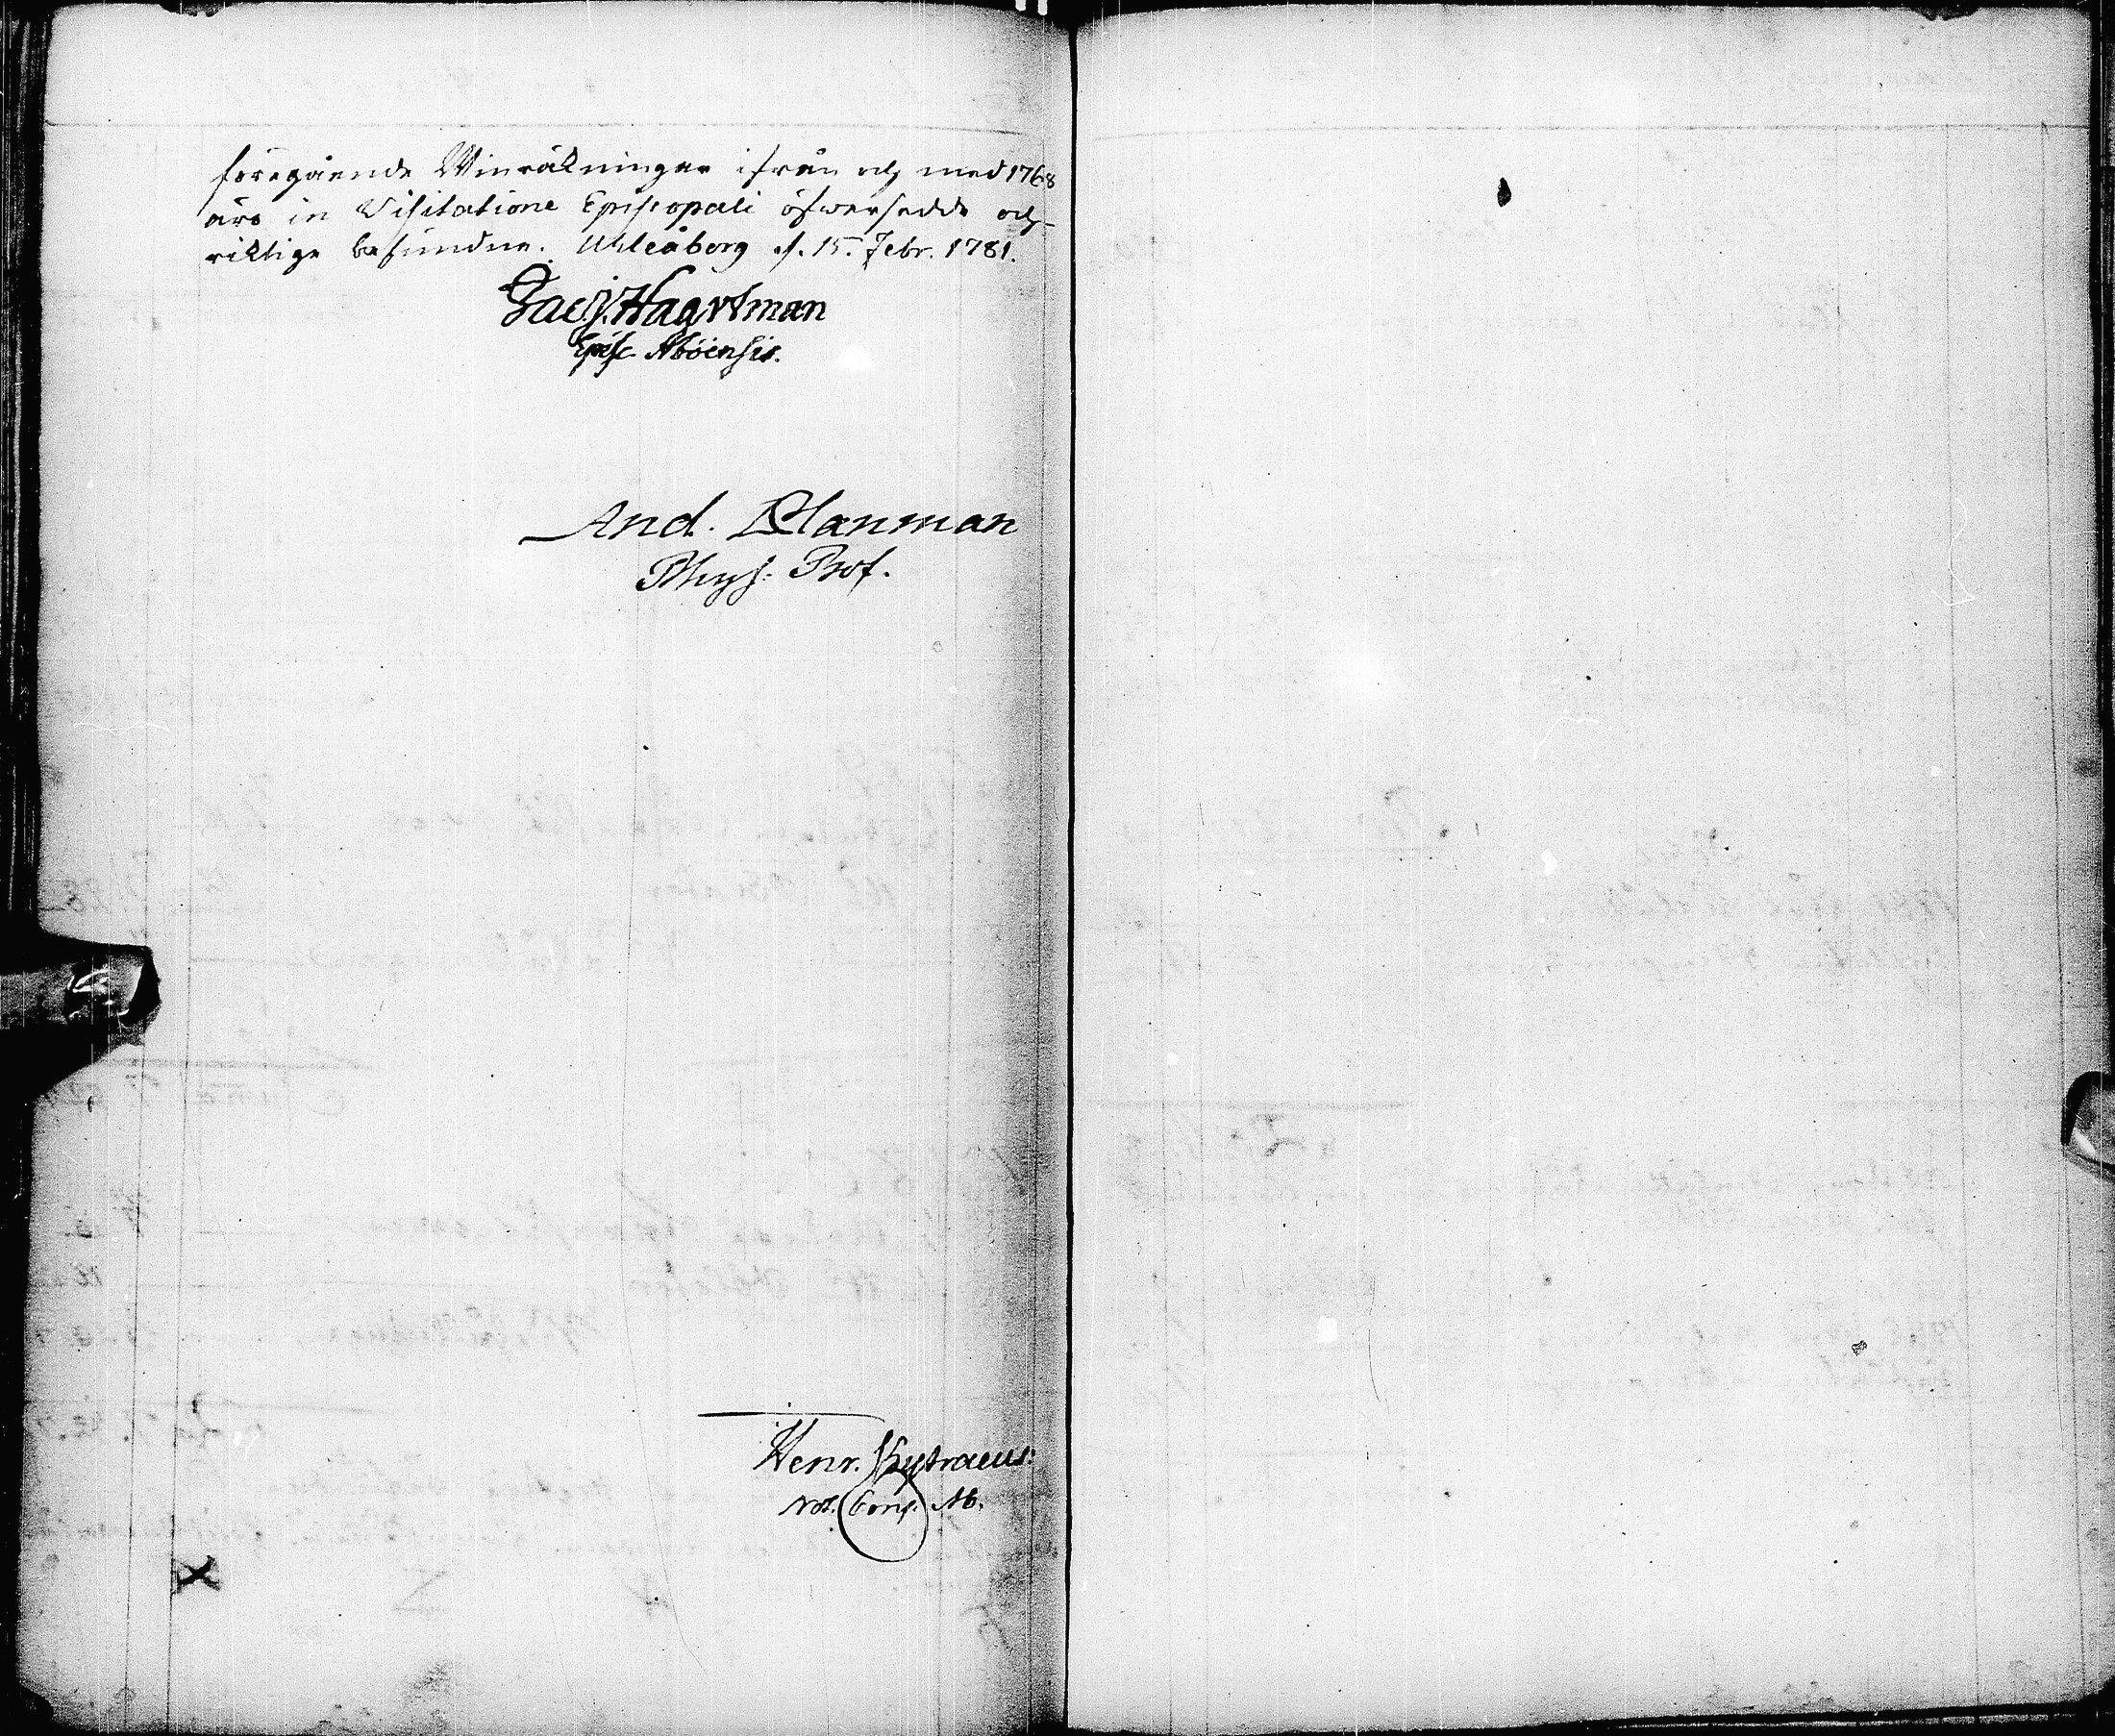 föregående Winräkningar ifrån och med 1768
äro in Visitatione Episcopali öfwersedde och
riktige befundne. Uhleåborg d. 15. Febr. 1781.
Jac. Haartman
Episc. Aboensis.
And. Planman
Phys: Prof.
Henr. Kytraeus:
Not. Cons. Ab.